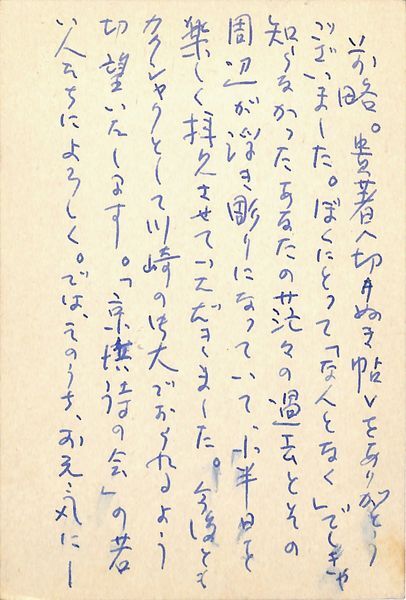 前略。貴著〈切りぬき帖〉をありがとう
ございました。ぼくにとって「なんとなく」でしか
知らなかったあなたの茫々の過去とその
周辺が浮き彫りになっていて、小半日を
楽しく拝見させていただきました。今後とも
カクシャクとして川崎の才大でおられるよう
切望いたします。「京浜詩の会」の若
い人たちによろしく。では、そのうち、お元気に―